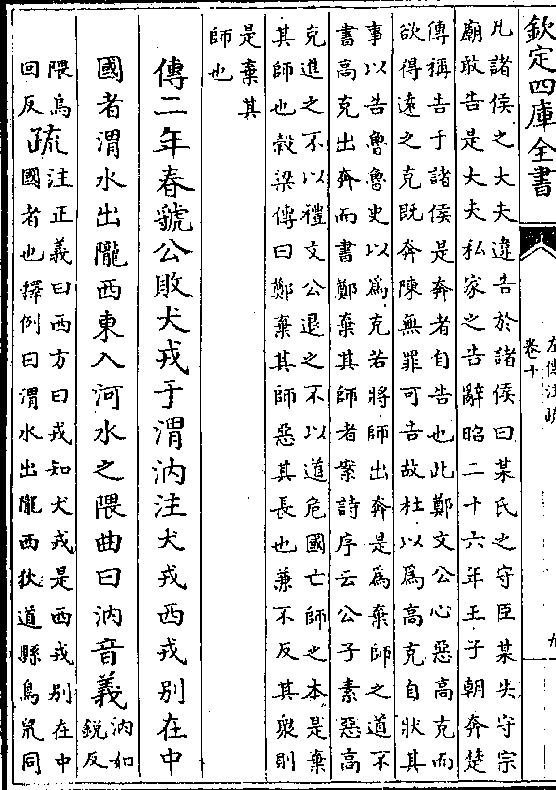 欽定四庫全書
左傳注疏
卷十
九
凡諸侯之大夫違告於諸侯曰某氏之守臣某失守宗
廟敢告是大夫私家之告辭昭二十六年王子朝奔楚
傳稱告于諸侯是奔者自告也此鄭文公心惡高克而
欲得遠之克既奔陳無罪可告故杜以為高克自狀其
事以告魯魯史以為克若將師出奔是為棄師之道不
書高克出奔而書鄭棄其師者案詩序云公子素惡高
克進之不以禮文公退之不以道危國亡師之本是棄
其師也穀梁傳曰鄭棄其師惡其長也兼不反其衆則
是棄其
師也
傳二年春虢公敗犬戎于渭汭注犬戎西戎别在中
國者渭水出隴西東入河水之隈曲曰汭音義汭如銳反
隈烏回反疏注正義曰西方曰戎知犬戎是西戎别在中
國者也釋例曰渭水出隴西狄道縣鳥鼠同